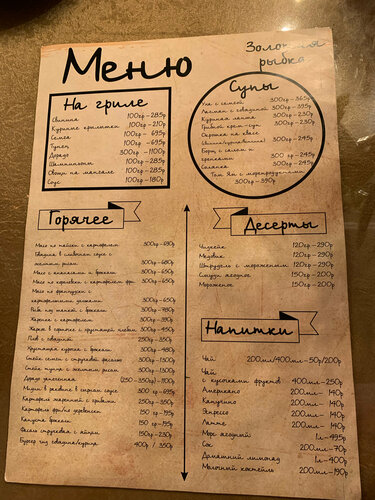 Меню
Золотая
рыбка
На гриле
Свинина 100гр-285р
Куриные крылышки 100гр-210р
Семга 100гр-695р
Тунец 100гр-695р
Дорадо 300гр-1100р
Шампиньоны 100гр-285р
Овощи на мангале 100гр-285р
Соус 100гр-180р
Супы
Уха с семгой 300гр-365р
Лагман с говядиной 300гр-355р
Куриная лапша 300гр-230р
Грибной крем-суп 300гр-230р
Окрошка на квасе
300гр-245р
Борщ с салом и
гренками 300гр-245р
Солянка 300гр-245р
Том Ям с морепродуктами
300гр-390р
Горячее
Мясо по тайски с картофелем
Говядина в сливочном соусе с
жемчужным рисом 300гр-680р
Мясо с ананасами и брокколи 300гр-650р
Мясо по королевски с картофелем фри 300гр-650р
Мясо по французски с
картофельными дольками 300гр-650р
Рибай под манго с брокколи
Курица с картофелем 300гр-390р
Жаркое в горшочке с 300гр-450р
Плов с говядиной 250гр-350р
Хрустящая курочка с брокколи 300гр-450р
Стейк семги с стручковой фасолью 300гр-1300р
Стейк тунца с жемчужным рисом 300гр-1300р
Дорадо запеченная
Мидии в раковине в сырном соусе 300гр-695р
Картофель жареный с грибами 250гр-350р
Картофель фри/по деревенски 150гр-195р
Капуста брокколи 150гр-195р
Фасоль стручковая с яйцом 150гр-230р
Бургер гиг говядина/курица 400р / 350р
Десерты
Чизкейк 120гр-290р
Медовик 120гр-290р
Штрудель с мороженым 120гр-290р
150гр-200р
Мороженое 150гр-200р
Напитки
Чай 200мл/400мл-50р/200р
Чай
с кусочками фруктов 400мл-250р
Американо 200мл-140р
Капучино 200мл-200р
Эспрессо 200мл-140р
Латте 200мл-200р
Морс ягодный 1л-495р
Сок 200мл-70р
Домашний лимонад 1л-400р
Молочный коктейль 200мл-190р